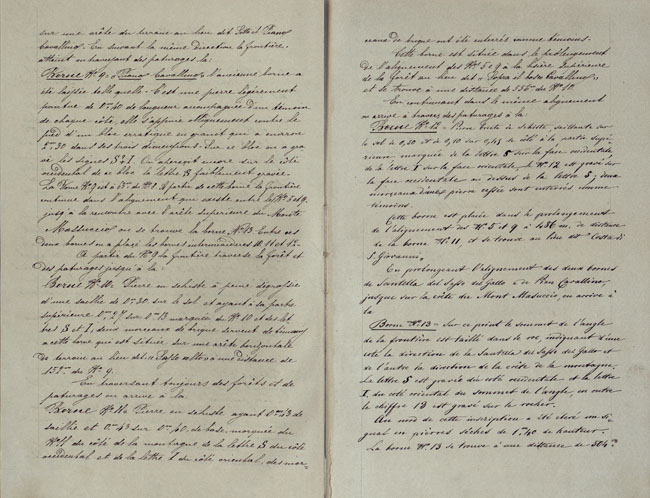 sur une arête du terrain au lieu dit Piano
Cavallino. En suivant la même direction la frontière,
atteint en traversant des paturages la:
Borne No. 9, à Piano Cavallino, l'ancienne borne a
été laissée telle quelle. C'est une pierre légèrement
pointue de de longueur accompagnée d'un temoin
de chaque côté, elle s'appuie entre le
pied d'un bloc erratique en granit qui a environ
2m.50 dans ses trois dimensions. Sur ce bloc on a gra-
vé les signes S & I. On aperçoit encore sur le côté
occidental de ce bloc la lettre S faiblement gravée.
La borne No. 9 est à de A partir de cette borne la frontière
continue dans l'alignement que existe entre les No. 5 et 9,
jusqu'à la rencontre avec l'arête superieure du Monte
Massuccio où se trouve la borne No. 13. Entre ces
deux bornes on a placé les bornes intermédiaires 10. 11 et 12.
A partir du No. 9 la frontière traverse la forêt et
des paturages jusqu'à la:
Borne No. 10. Pierre en schiste à peine dégrossie
d'une saillie de 0m.30 sur le sol et ayant à sa partie
supérieure 0m.27 sur 0m.13 marquée du No. 10 et des let-
tres S et I, deux morceaux de brique servent de temoins
à cette borne qui est située sur une arête horizontale
de terrain au lieu dit à une distance de
du No. 9.
En traversant toujours des forêts et de
paturages on arrive à la
Borne No. 11. Pierre en schiste ayant 0m.43 de
saillie et 0m.43 sur 0m.40 de base, marquée du
No. 11 du côté de la montagne de la lettre S du côté
occidental et de la lettre I du côté oriental, des mor-
ceaux de brique ont été enterrés comme temoins.
Cette borne est située dans le prolongement
de l'alignement des No. 5 e 9 à la lisière supérieure
de la forêt au lieu dit « Sopra il bosco Cavallino »,
et se trouve à une distance de 336m. du No. 10.
En continuant dans le même alignement
on arrive à travers des paturages à la
Borne No. 12 - Pierre brute de schiste, saillante sur
le sol de 0,50 et de 0,10 sur 0,45 de côté à la partie supé-
rieure marquée de la lettre S sur la face occidentale
de la lettre I sur la face orientale, le No. 12 est gravé sur
la face occidentale au dessus de la lettre S; deux
morceaux d'une pierre cassée sont enterrés comme
temoins.
Cette borne est placée dans le prolongement
de l'alignement des No. 5 et 9 à 436m, de distance
de la borne No. 11, et se trouve au lieu dit « Costa di
S. Giovanni ».
En prolongeant l'alignement des deux bornes
de Santella del Sasso del Gallo e de Pian Cavallino,
jusque sur la crête du Mont Masuccio, on arrive à
la
Borne No. 13 - Sur ce point le sommet de l'angle
de la frontière est taillé dans le roc, indiquant d'une
côté la direction de la Santella del Sasso del Gallo et
de l'autre la direction de la crête de la montagne.
La lettre S est gravée du côté occidental et la lettre
I, du côté oriental du sommet de l'angle, en outre
le chiffre 13 est gravé sur le rocher.
Au nord de cette inscription a été élevé un si-
gnal en pierres sèches de 1m,40 de hauteur.
La borne No. 13 se trouve à une distance de 504m.